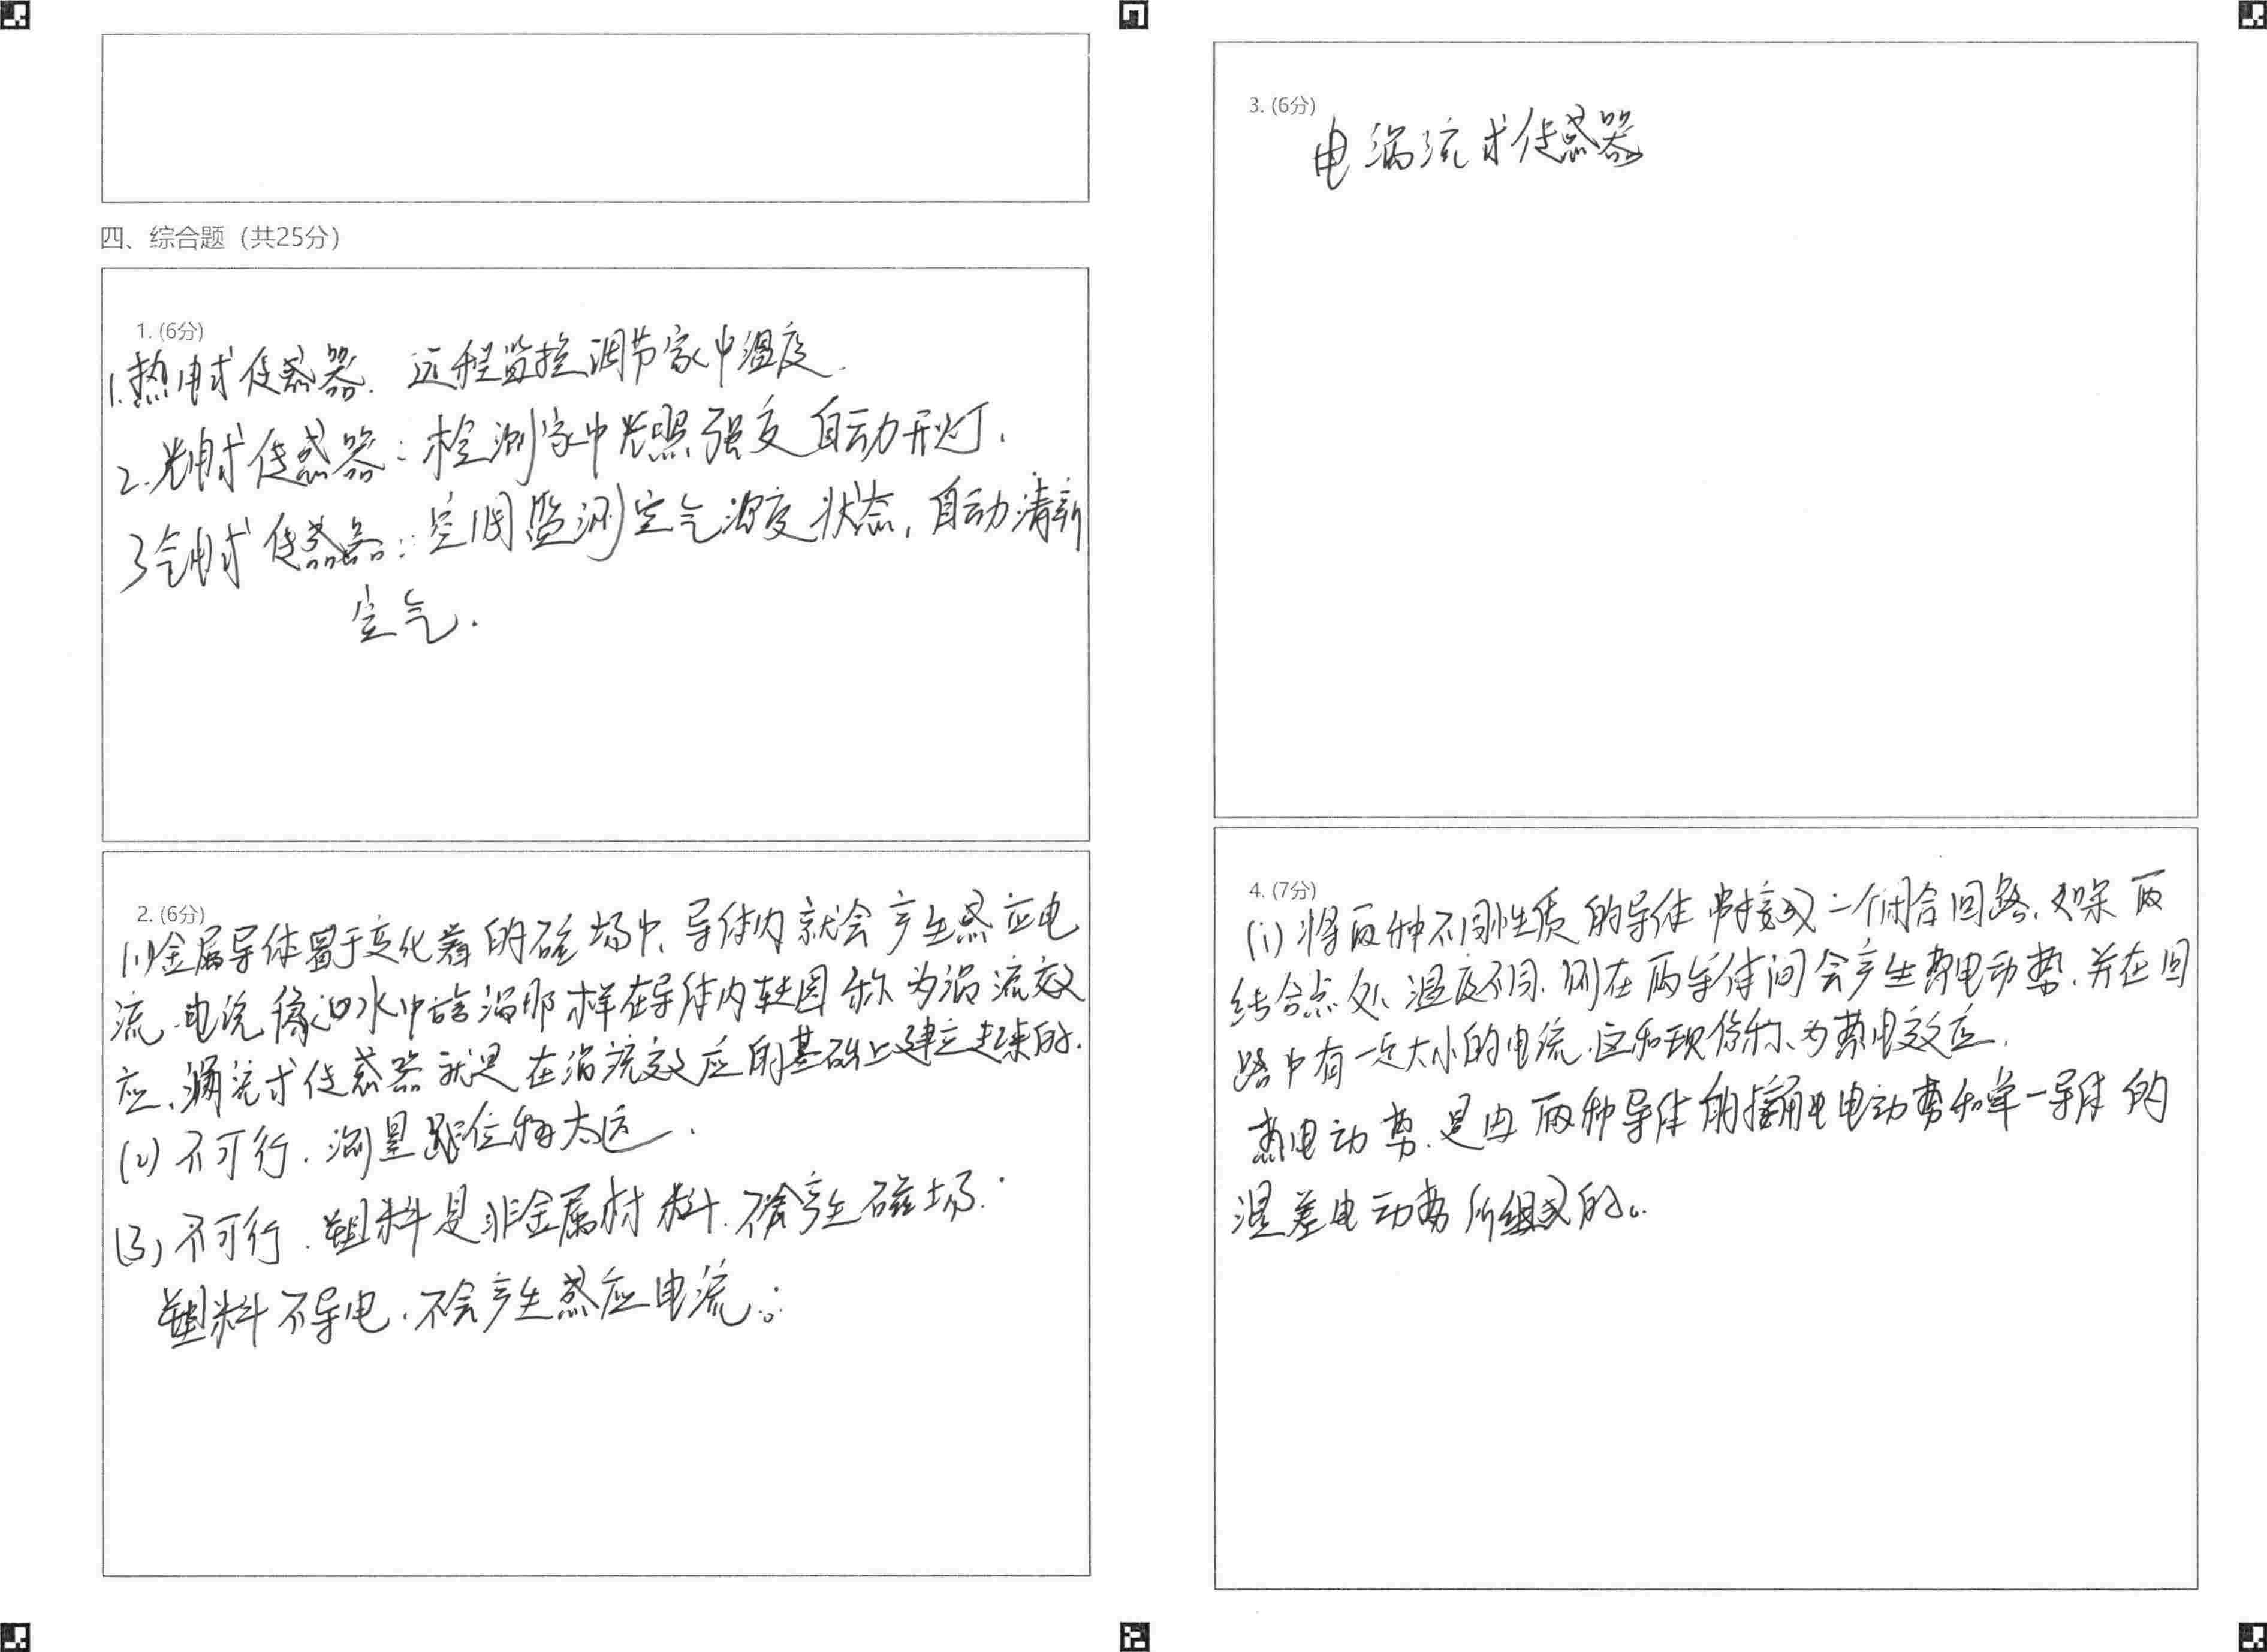 四、综合题（共25分）
1. (6分)
1.热电式传感器. 远程监控调节家中温度.
2.光电式传感器：检测家中光照强度自动开灯.
3气电式传感器：空调监测空气浓度状态，自动清新
空气.
2. (6分)
(1)金属导体置于变化着的磁场中，导体内就会产生感应电
流.电流像水中旋涡那样在导体内转圈称为涡流效
应.涡流式传感器就是在涡流效应的基础上建立起来的.
(2)不可行.测量距位移太远.
(3)不可行.塑料是非金属材料.不会产生磁场.
塑料不导电.不会产生感应电流.
3. (6分)
电涡流式传感器
4. (7分)
(1)将两种不同性质的导体串接成一个闭合回路.如果两
结合点处温度不同.则在两导体间会产生热电动势.并在回
路中有一定大小的电流.这种现象称为热电效应.
热电动势.是由两种导体的接触电动势和单一导体的
温差电动势所组成的.